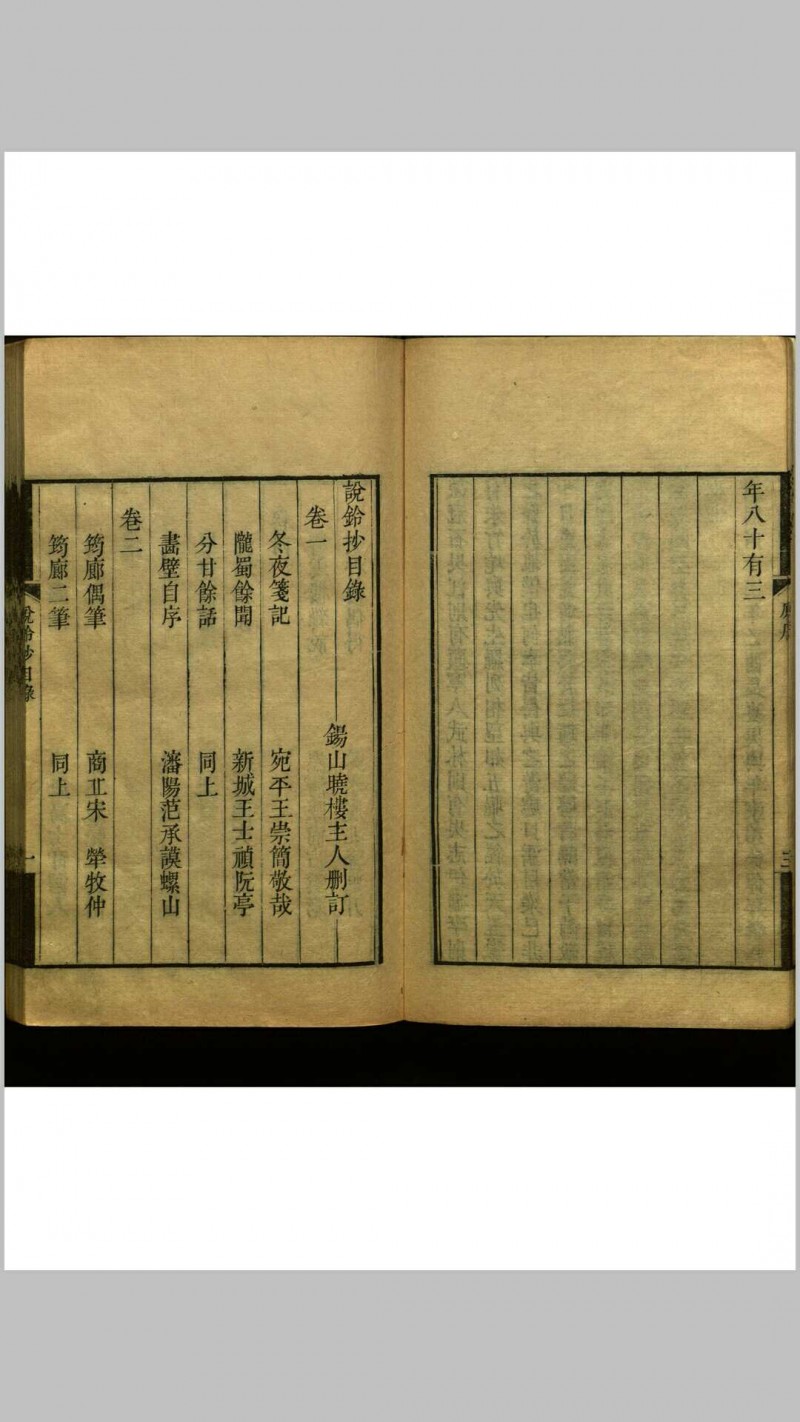 年八十有三
三
說鈴抄目錄
錫山曉樓主人刪訂
卷一
冬夜箋記　宛平王崇簡敬哉
隴蜀餘聞　新城王士禎阮亭
分甘餘話　同上
畫壁自序　瀋陽范承謨螺山
卷二
筠廊偶筆　商丘宋犖牧仲
筠廊二筆　同上
說鈴抄目錄
一